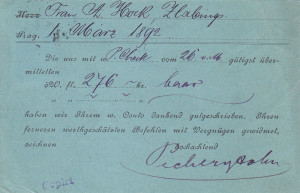 Herrn Franz A. Hock, Zlabings
Prag, 1. März 1892
Die uns mit P. Check vom 26. v. M. gütigst übermittelten
ö. W. fl. 276 – kr. baar
haben wir Ihrem w. Conto dankend gutgeschrieben. Ihren
ferneren werthgeschätzten Befehlen mit Vergnügen gewidmet,
zeichnen
Hochachtend